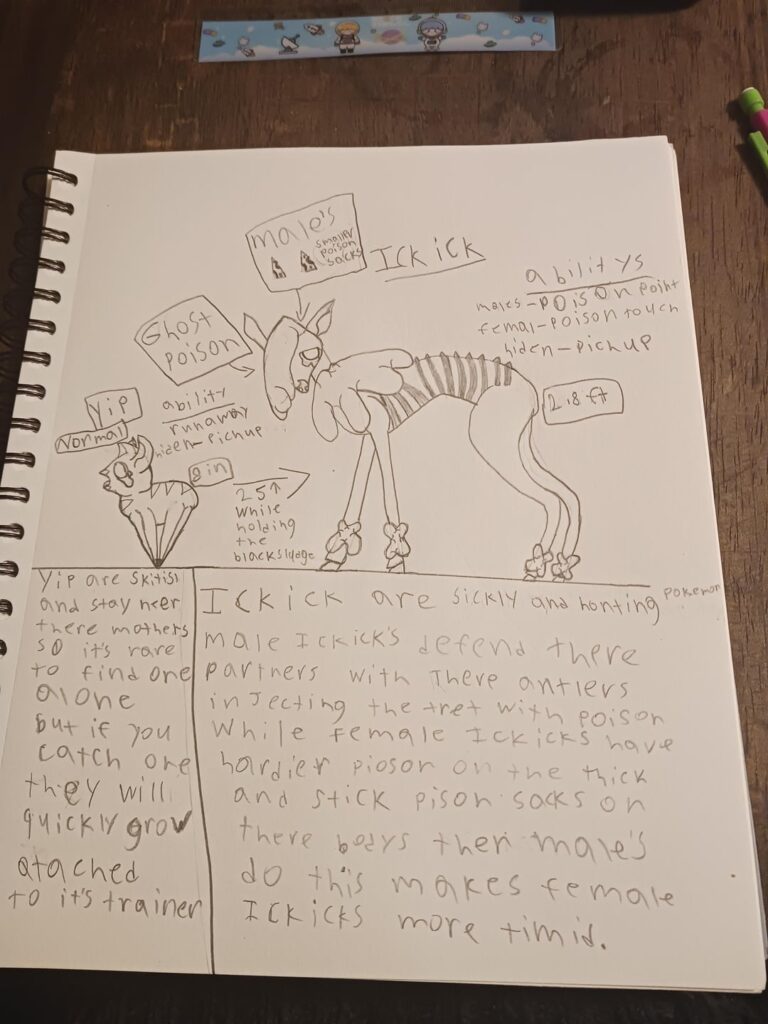 male's
smaller
poison
sacks
Ickick
abilitys
males-poison point
femal-poison touch
hiden-pickup
Ghost
poison
2.8 ft
Yip
Normal
ability
runaway
hiden-pickup
8 in
25↑
while
holding
the
blacksludge
Yip are skitish
and stay neer
there mothers
so it's rare
to find one
alone
but if you
catch one
they will
quickly grow
atached
to it's trainer
Ickick are sickly and honting pokemon
male Ickick's defend there
partners with there antlers
injecting the tret with poison
while female Ickicks have
hardier pioson on the thick
and stick pison sacks on
there bodys then male's
do this makes female
Ickicks more timid.